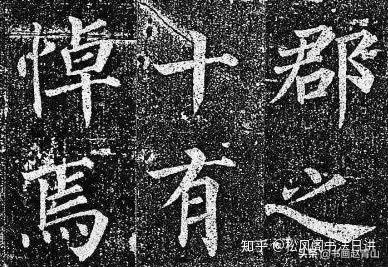 郡之
十有
悼焉
知乎 @松风阁书法日讲
头条 @书画赵青山